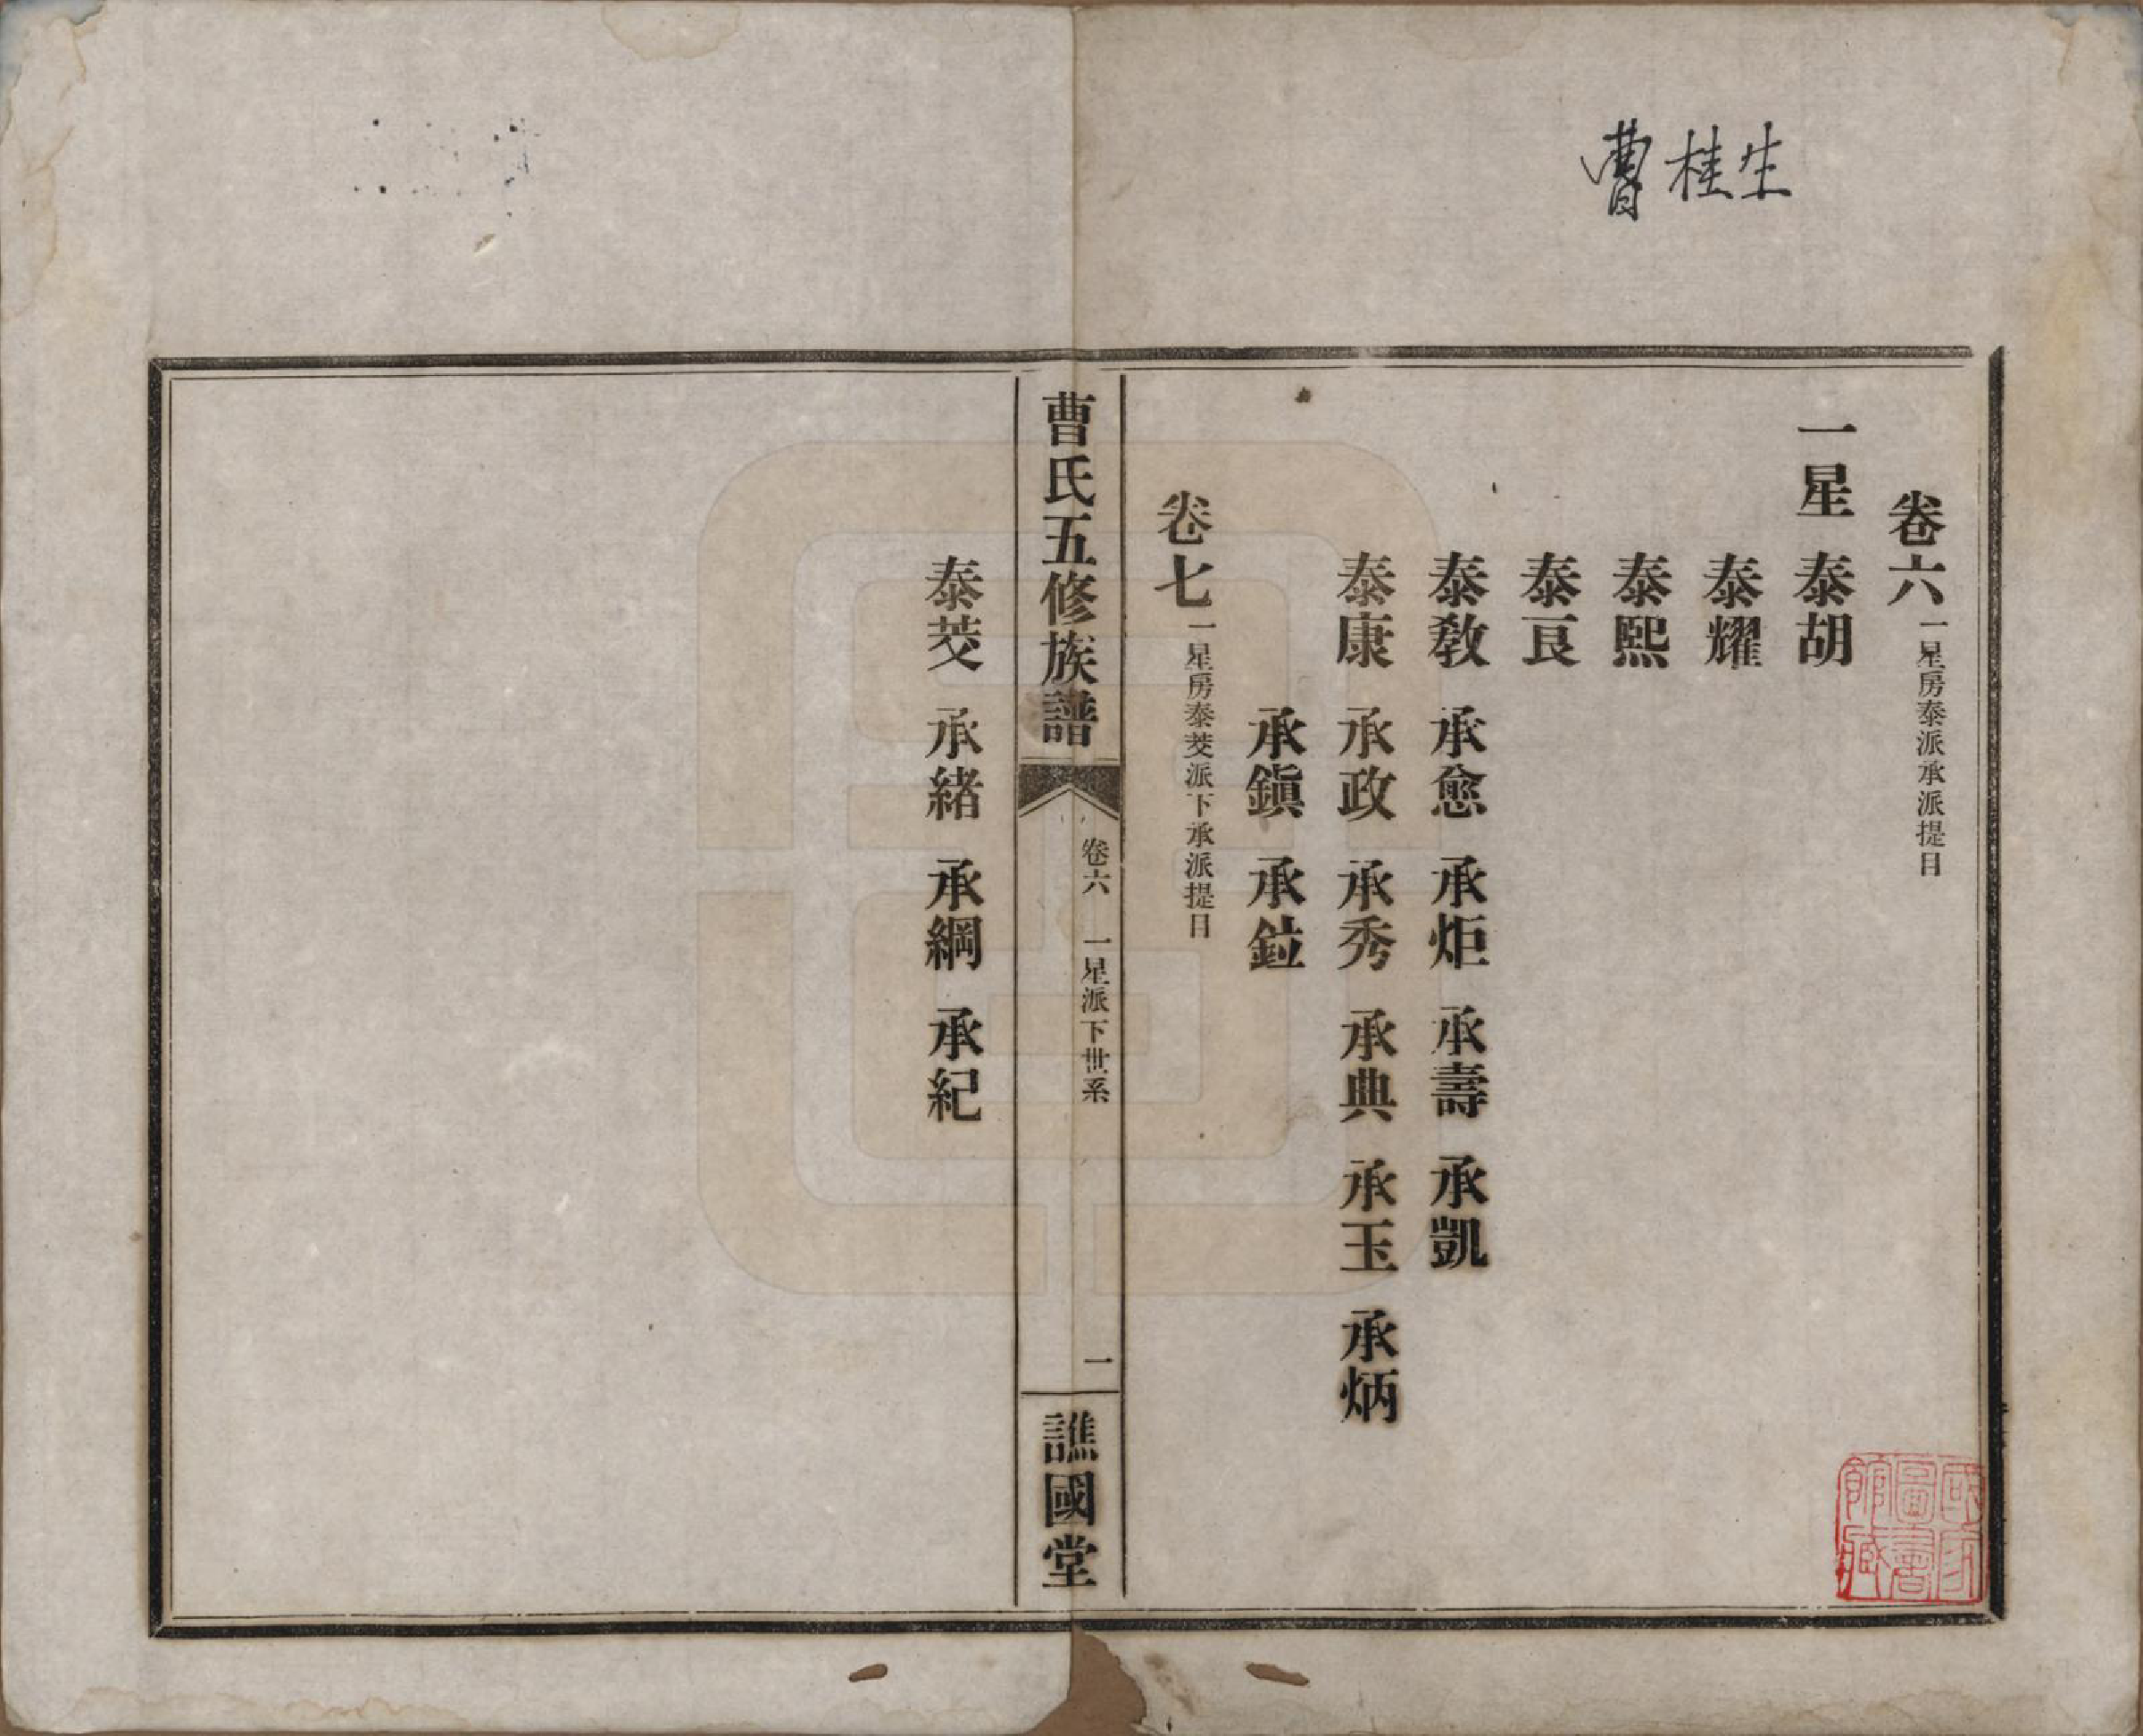 曹桂生
卷六 一星房泰派承派提目
一星 泰胡
泰耀
泰熙
泰良
泰教 承愈 承炬 承壽 承凱
泰康 承政 承秀 承典 承玉 承炳
承鎭 承鉝
卷七 一星房泰芠派下承派提目
曹氏五修族譜 卷六 一星派下世系 一 譙國堂
泰芠 承緒 承綱 承紀
國家圖書館藏